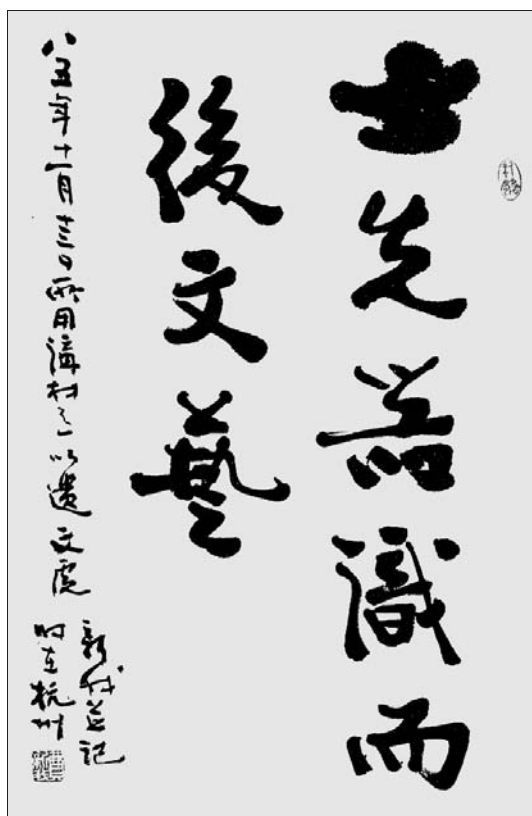 士先器識而
後文藝
八五年十一月十三日所用講材之一以遺文虎
新材並記
时在杭州